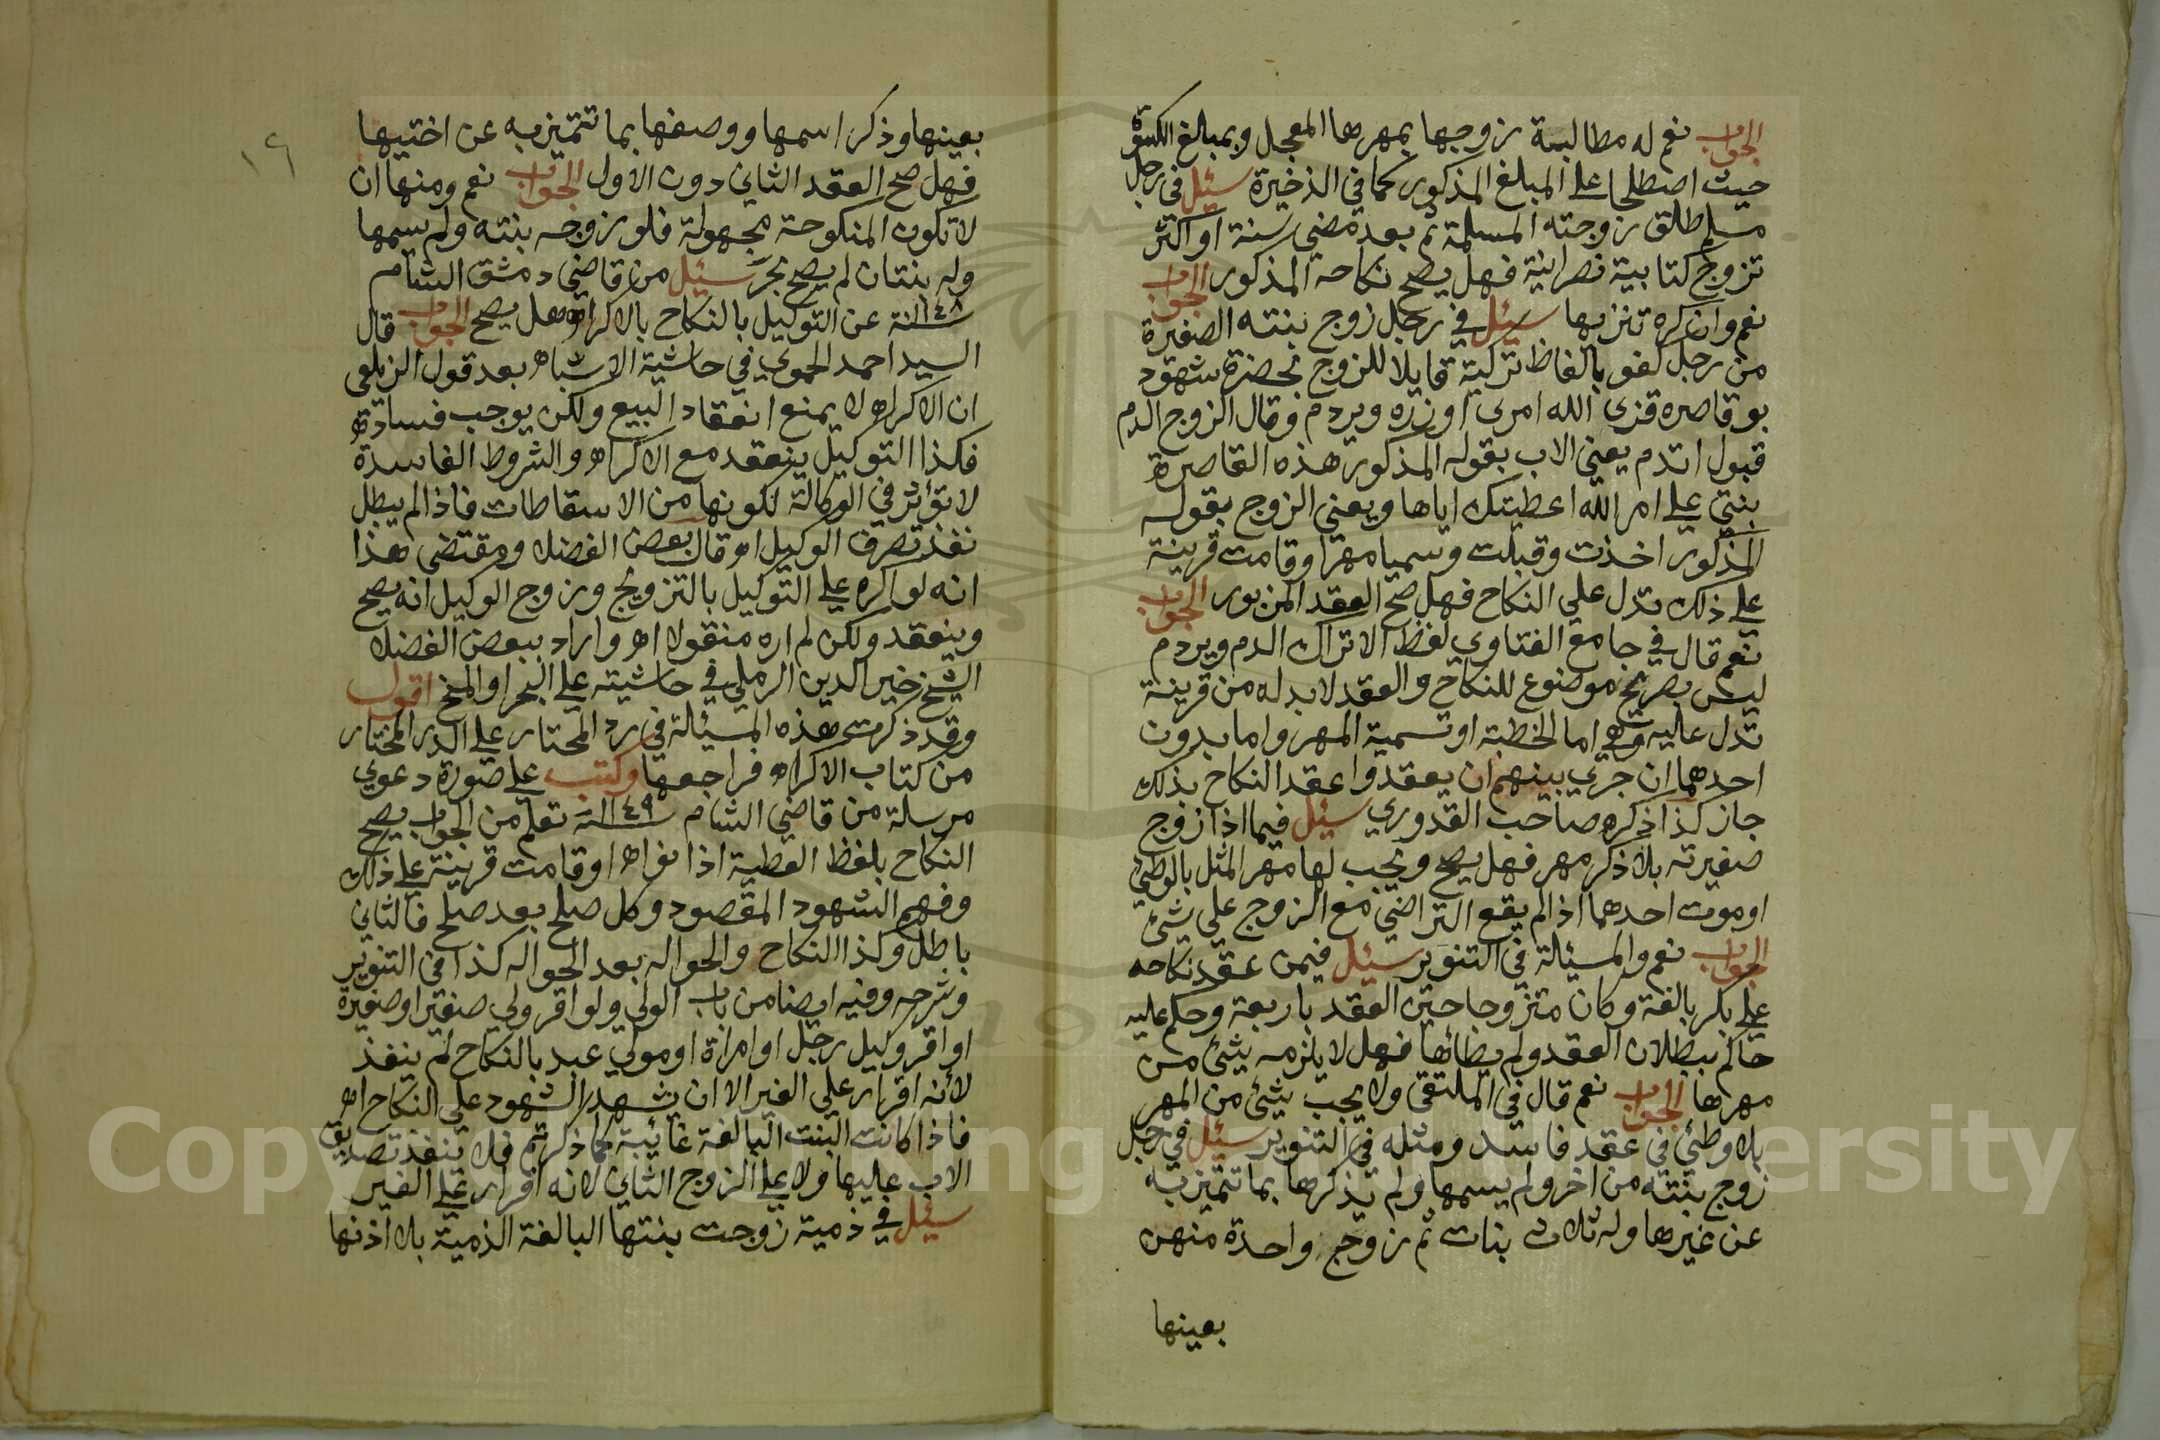 الجواب نعم له مطالبة زوجها بمهرها المعجل وبمبلغ الكسوة
حيث اصطلحا على المبلغ المذكور كما في الذخيرة سئل في رجل
مسلم طلق زوجته المسلمة ثم بعد مضي سنة او اكثر
تزوج كتابية نصرانية فهل يصح نكاحه المذكور الجواب
نعم وان كره تنزيها سئل في رجل زوج بنته الصغيرة
من رجل كفو بالفاظ تركية قايلا للزوج بحضرة شهود
بو قاصره قزى الله امرى اوزره ويردم وقال الزوج الدم
قبول اتدم يعني الاب بقوله المذكور هذه القاصرة
بنتي على امر الله اعطيتك اياها ويعني الزوج بقوله
المذكور اخذت وقبلت وسميا مهرا وقامت قرينة
على ذلك تدل على النكاح فهل صح العقد المزبور الجواب
نعم قال في جامع الفتاوي لفظ الاتراك الدم ويردم
ليس بصريح موضوع للنكاح والعقد لابد له من قرينة
تدل عليه وهي اما الخطبة او تسمية المهر واما بدون
احدهما ان جري بينهم ان يعقدوا عقد النكاح بذلك
جاز كذا ذكره صاحب القدوري سئل فيما اذا زوج
صغيرته بلا ذكر مهر فهل يصح ويجب لها مهر المثل بالوطئ
او موت احدهما اذا لم يقع التراضي مع الزوج على شئ
الجواب نعم والمسئلة في التنوير سئل فيمن عقد نكاحه
على بكر بالغة وكان متزوجا حين العقد باربعة وحكم عليه
حاكم ببطلان العقد ولم يطائها فهل لا يلزمه شئ من
مهرها الجواب نعم قال في الملتقى ولا يجب شئ من المهر
بلا وطئ في عقد فاسد ومثله في التنوير سئل في رجل
زوج بنته من اخر ولم يسمها ولم يذكرها بما تتميز به
عن غيرها وله ثلاث بنات ثم زوج واحدة منهن
بعينها
١٦
بعينها وذكر اسمها ووصفها بما تتميز به عن اختيها
فهل صح العقد الثاني دون الاول الجواب نعم ومنها ان
لا تكون المنكوحة مجهولة فلو زوجه بنته ولم يسمها
وله بنتان لم يصح بحر سئل من قاضي دمشق الشام
سنة ١١٤٨ عن التوكيل بالنكاح بالاكراه هل يصح الجواب قال
السيد احمد الحموي في حاشية الاشباه بعد قول الزيلعي
ان الاكراه لا يمنع انعقاد البيع ولكن يوجب فساده
فكذا التوكيل ينعقد مع الاكراه والشروط الفاسدة
لا تؤثر في الوكالة لكونها من الاسقاطات فاذا لم يبطل
نفذ تصرف الوكيل اه وقال بعض الفضلا ومقتضى هذا
انه لو اكره على التوكيل بالتزويج وزوج الوكيل انه يصح
وينعقد ولكن لم اره منقولا اه واراد ببعض الفضلا
الشيخ خير الدين الرملي في حاشيته على البحر او المنح اقول
وقد ذكرت هذه المسئلة في رد المحتار على الدر المختار
من كتاب الاكراه فراجعها وكتب على صورة دعوي
مرسلة من قاضي الشام سنة ١١٤٩ تعلم من الجواب يصح
النكاح بلفظ العطية اذا نواه او قامت قرينة على ذلك
وفهم الشهود المقصود وكل صلح بعد صلح فالثاني
باطل وكذا النكاح والحواله بعد الحواله كذا في التنوير
وشرحه وفيه ايضا من باب الولي ولو اقر ولي صغير او صغيرة
او اقر وكيل رجل او امراة او مولي عبد بالنكاح لم ينفذ
لأنه اقرار على الغير الا ان يشهد الشهود على النكاح اه
فاذا كانت البنت البالغة غائبة كما ذكرتم فلا تنفذ تصديق
الاب عليها ولا على الزوج الثاني لانه اقرار على الغير
سئل في ذمية زوجت بنتها البالغة الذمية بلا اذنها